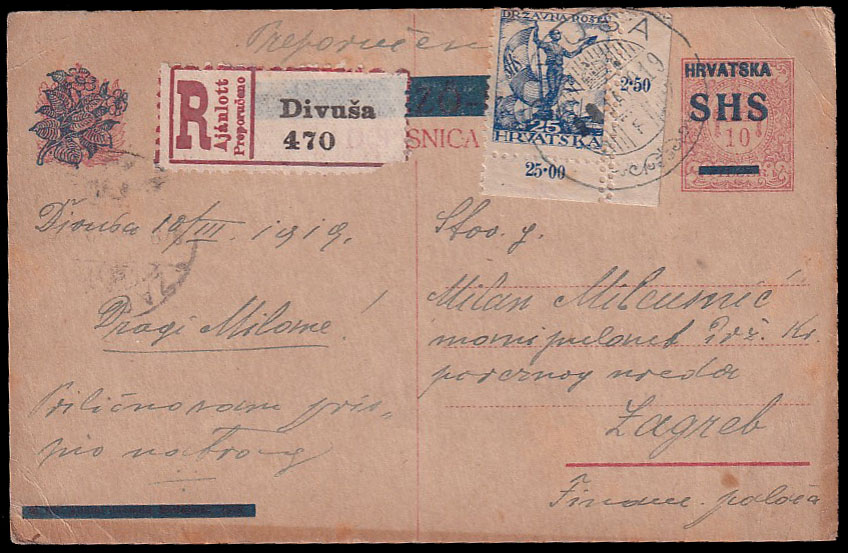 Preporučeno
R
Ajánlott
Preporučeno
Divuša
470
SNICA
DRŽAVNA POŠTA
SHS
25
HRVATSKA
2·50
25·00
HRVATSKA
SHS
10
Divuša 10/III. 1919.
Dragi Milane!
Prilično sam pris-
pio na
Štov. g.
Milan
manipulant Drž. Kr.
poreznog ureda
Zagreb
Financ. palača